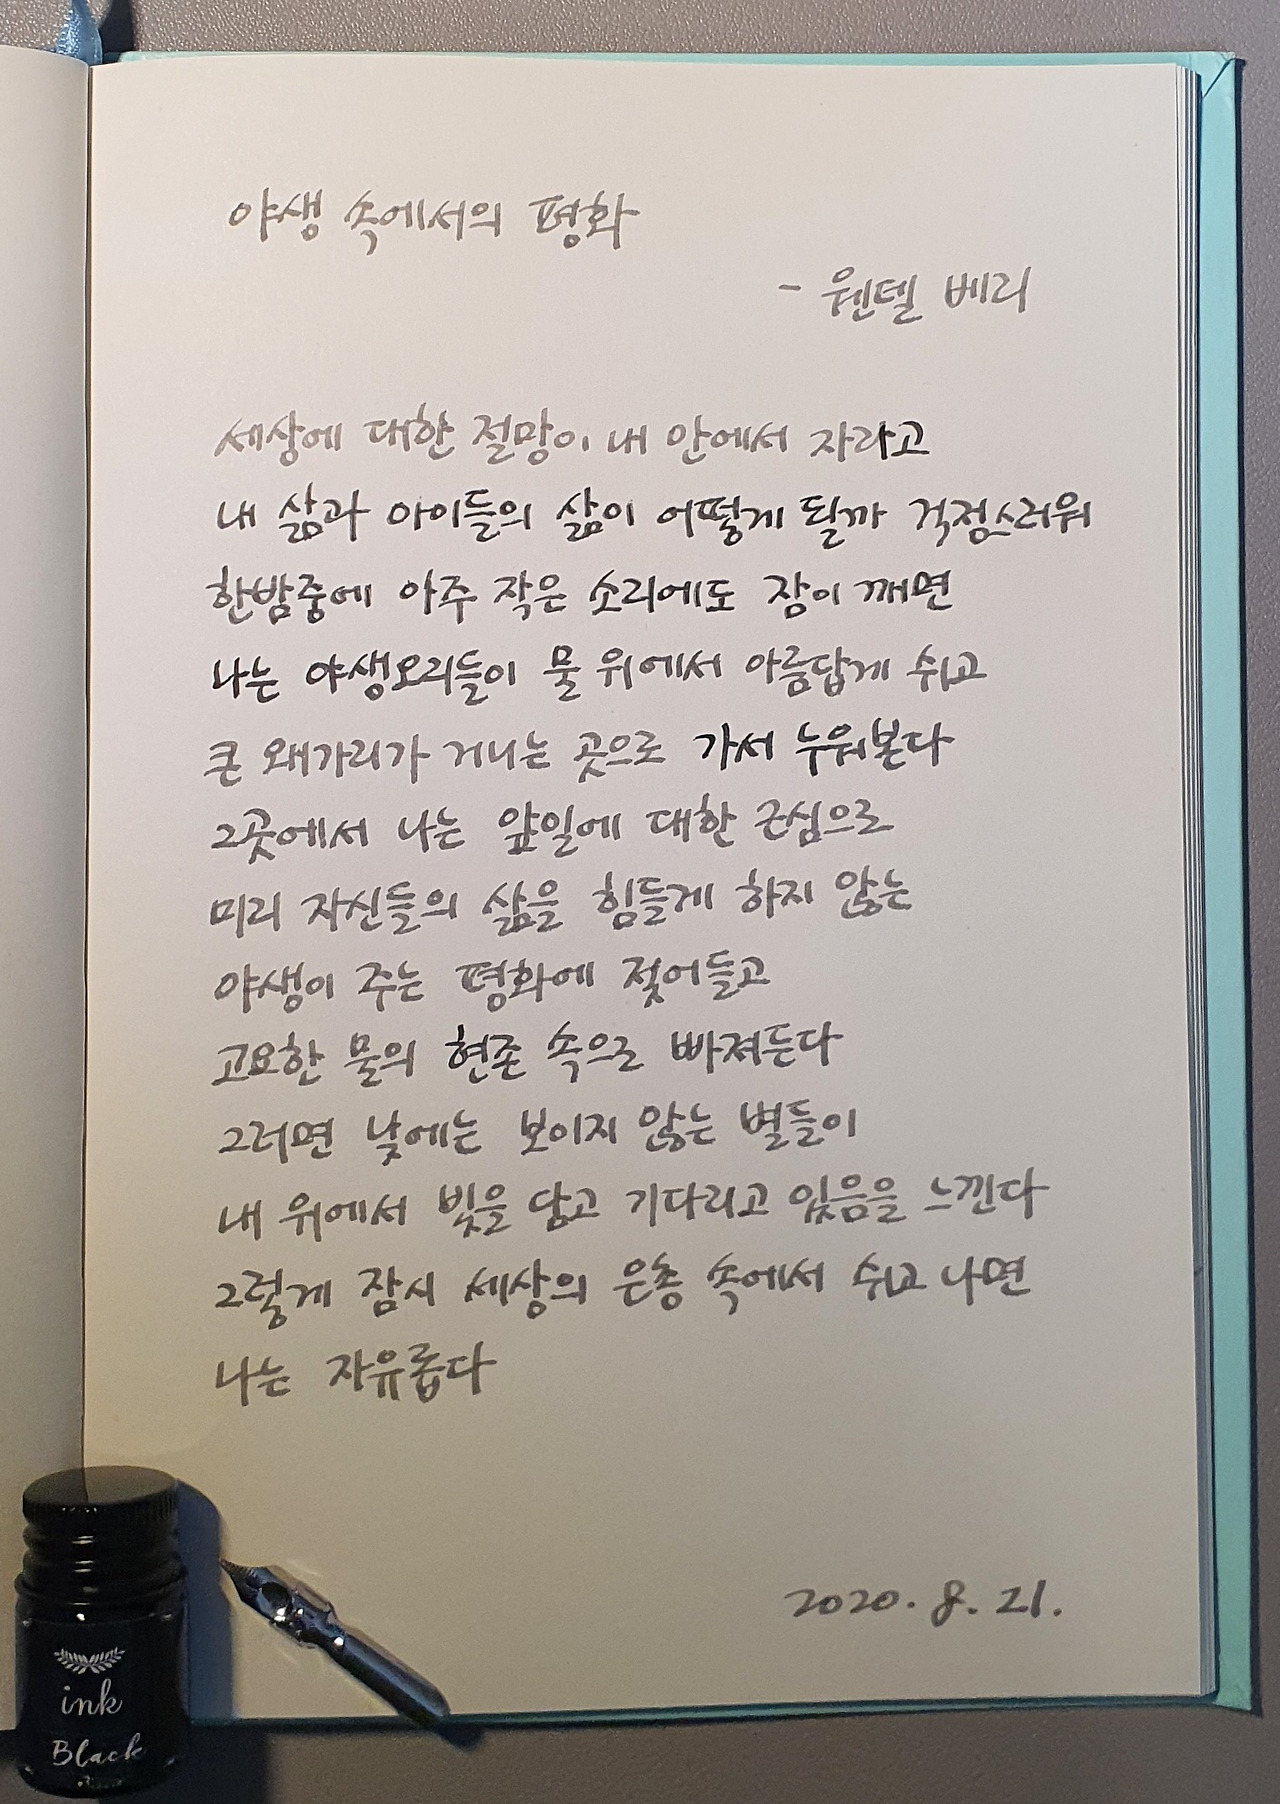 야생 속에서의 평화
- 웬델 베리
세상에 대한 절망이 내 안에서 자라고
내 삶과 아이들의 삶이 어떻게 될까 걱정스러워
한밤중에 아주 작은 소리에도 잠이 깨면
나는 야생오리들이 물 위에서 아름답게 쉬고
큰 왜가리가 거니는 곳으로 가서 누워본다
그곳에서 나는 앞일에 대한 근심으로
미리 자신들의 삶을 힘들게 하지 않는
야생이 주는 평화에 젖어들고
고요한 물의 현존 속으로 빠져든다
그러면 낮에는 보이지 않는 별들이
내 위에서 빛을 담고 기다리고 있음을 느낀다
그렇게 잠시 세상의 은총 속에서 쉬고 나면
나는 자유롭다
2020. 8. 21.
ink
Black